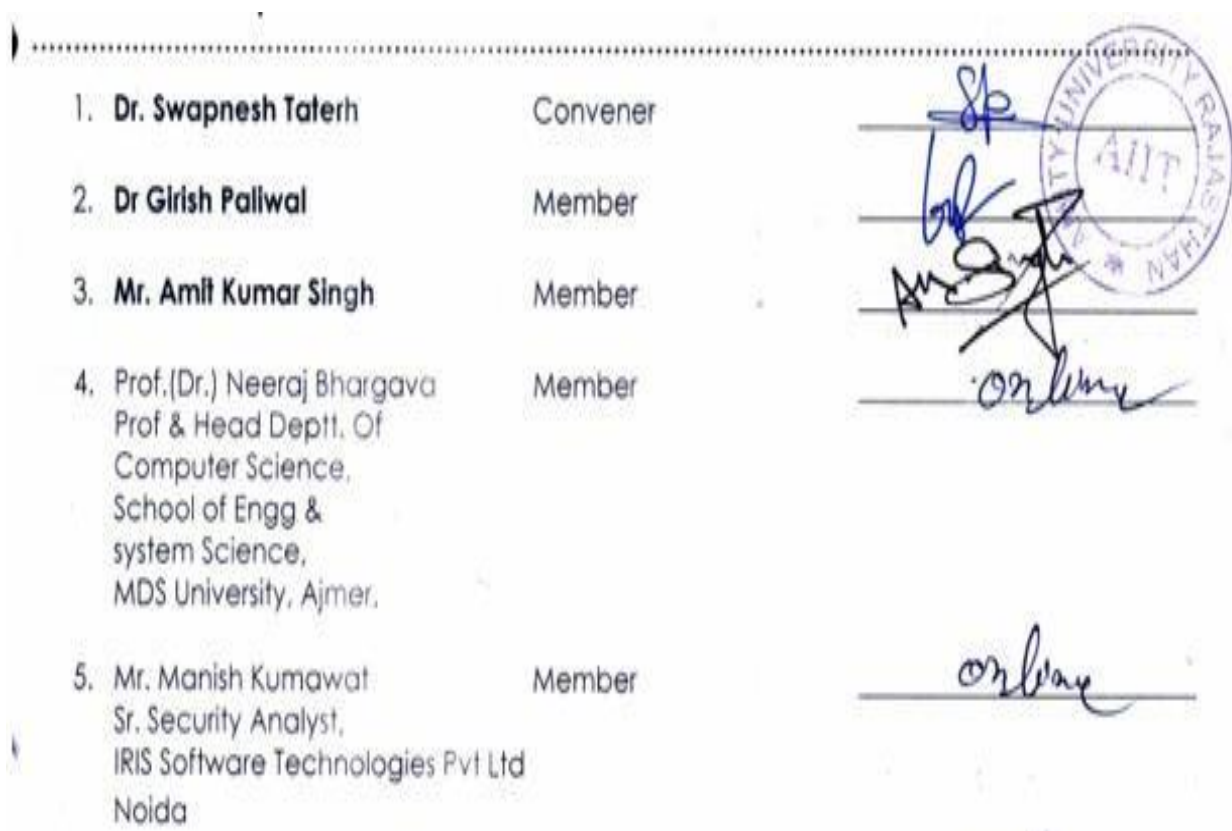 1. Dr. Swapnesh Taterh Convener
2. Dr Girish Paliwal Member
3. Mr. Amit Kumar Singh Member
4. Prof.(Dr.) Neeraj Bhargava Member online
Prof & Head Deptt. Of
Computer Science,
School of Engg &
system Science,
MDS University, Ajmer,
5. Mr. Manish Kumawat Member online
Sr. Security Analyst,
IRIS Software Technologies Pvt Ltd
Noida
AMITY UNIVERSITY RAJASTHAN
AIIT